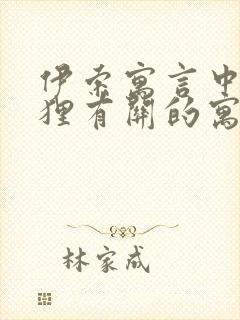 伊索寓言中
狸有關的寓
林家成